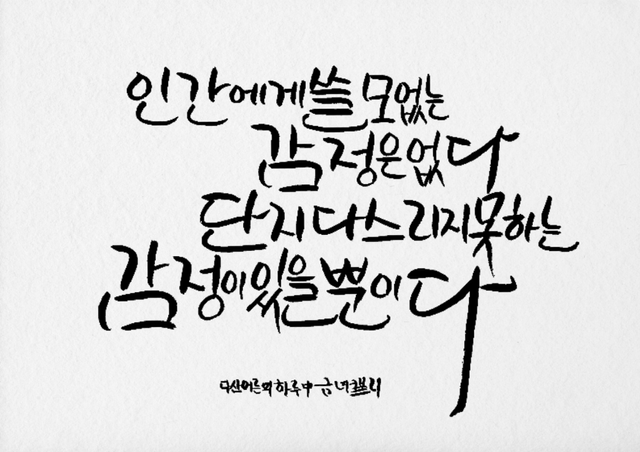 인간에게 쓸모없는
감정은 없다
단지 다스리지 못하는
감정이 있을 뿐이다
다산어른의 하루 中 금녀캘리